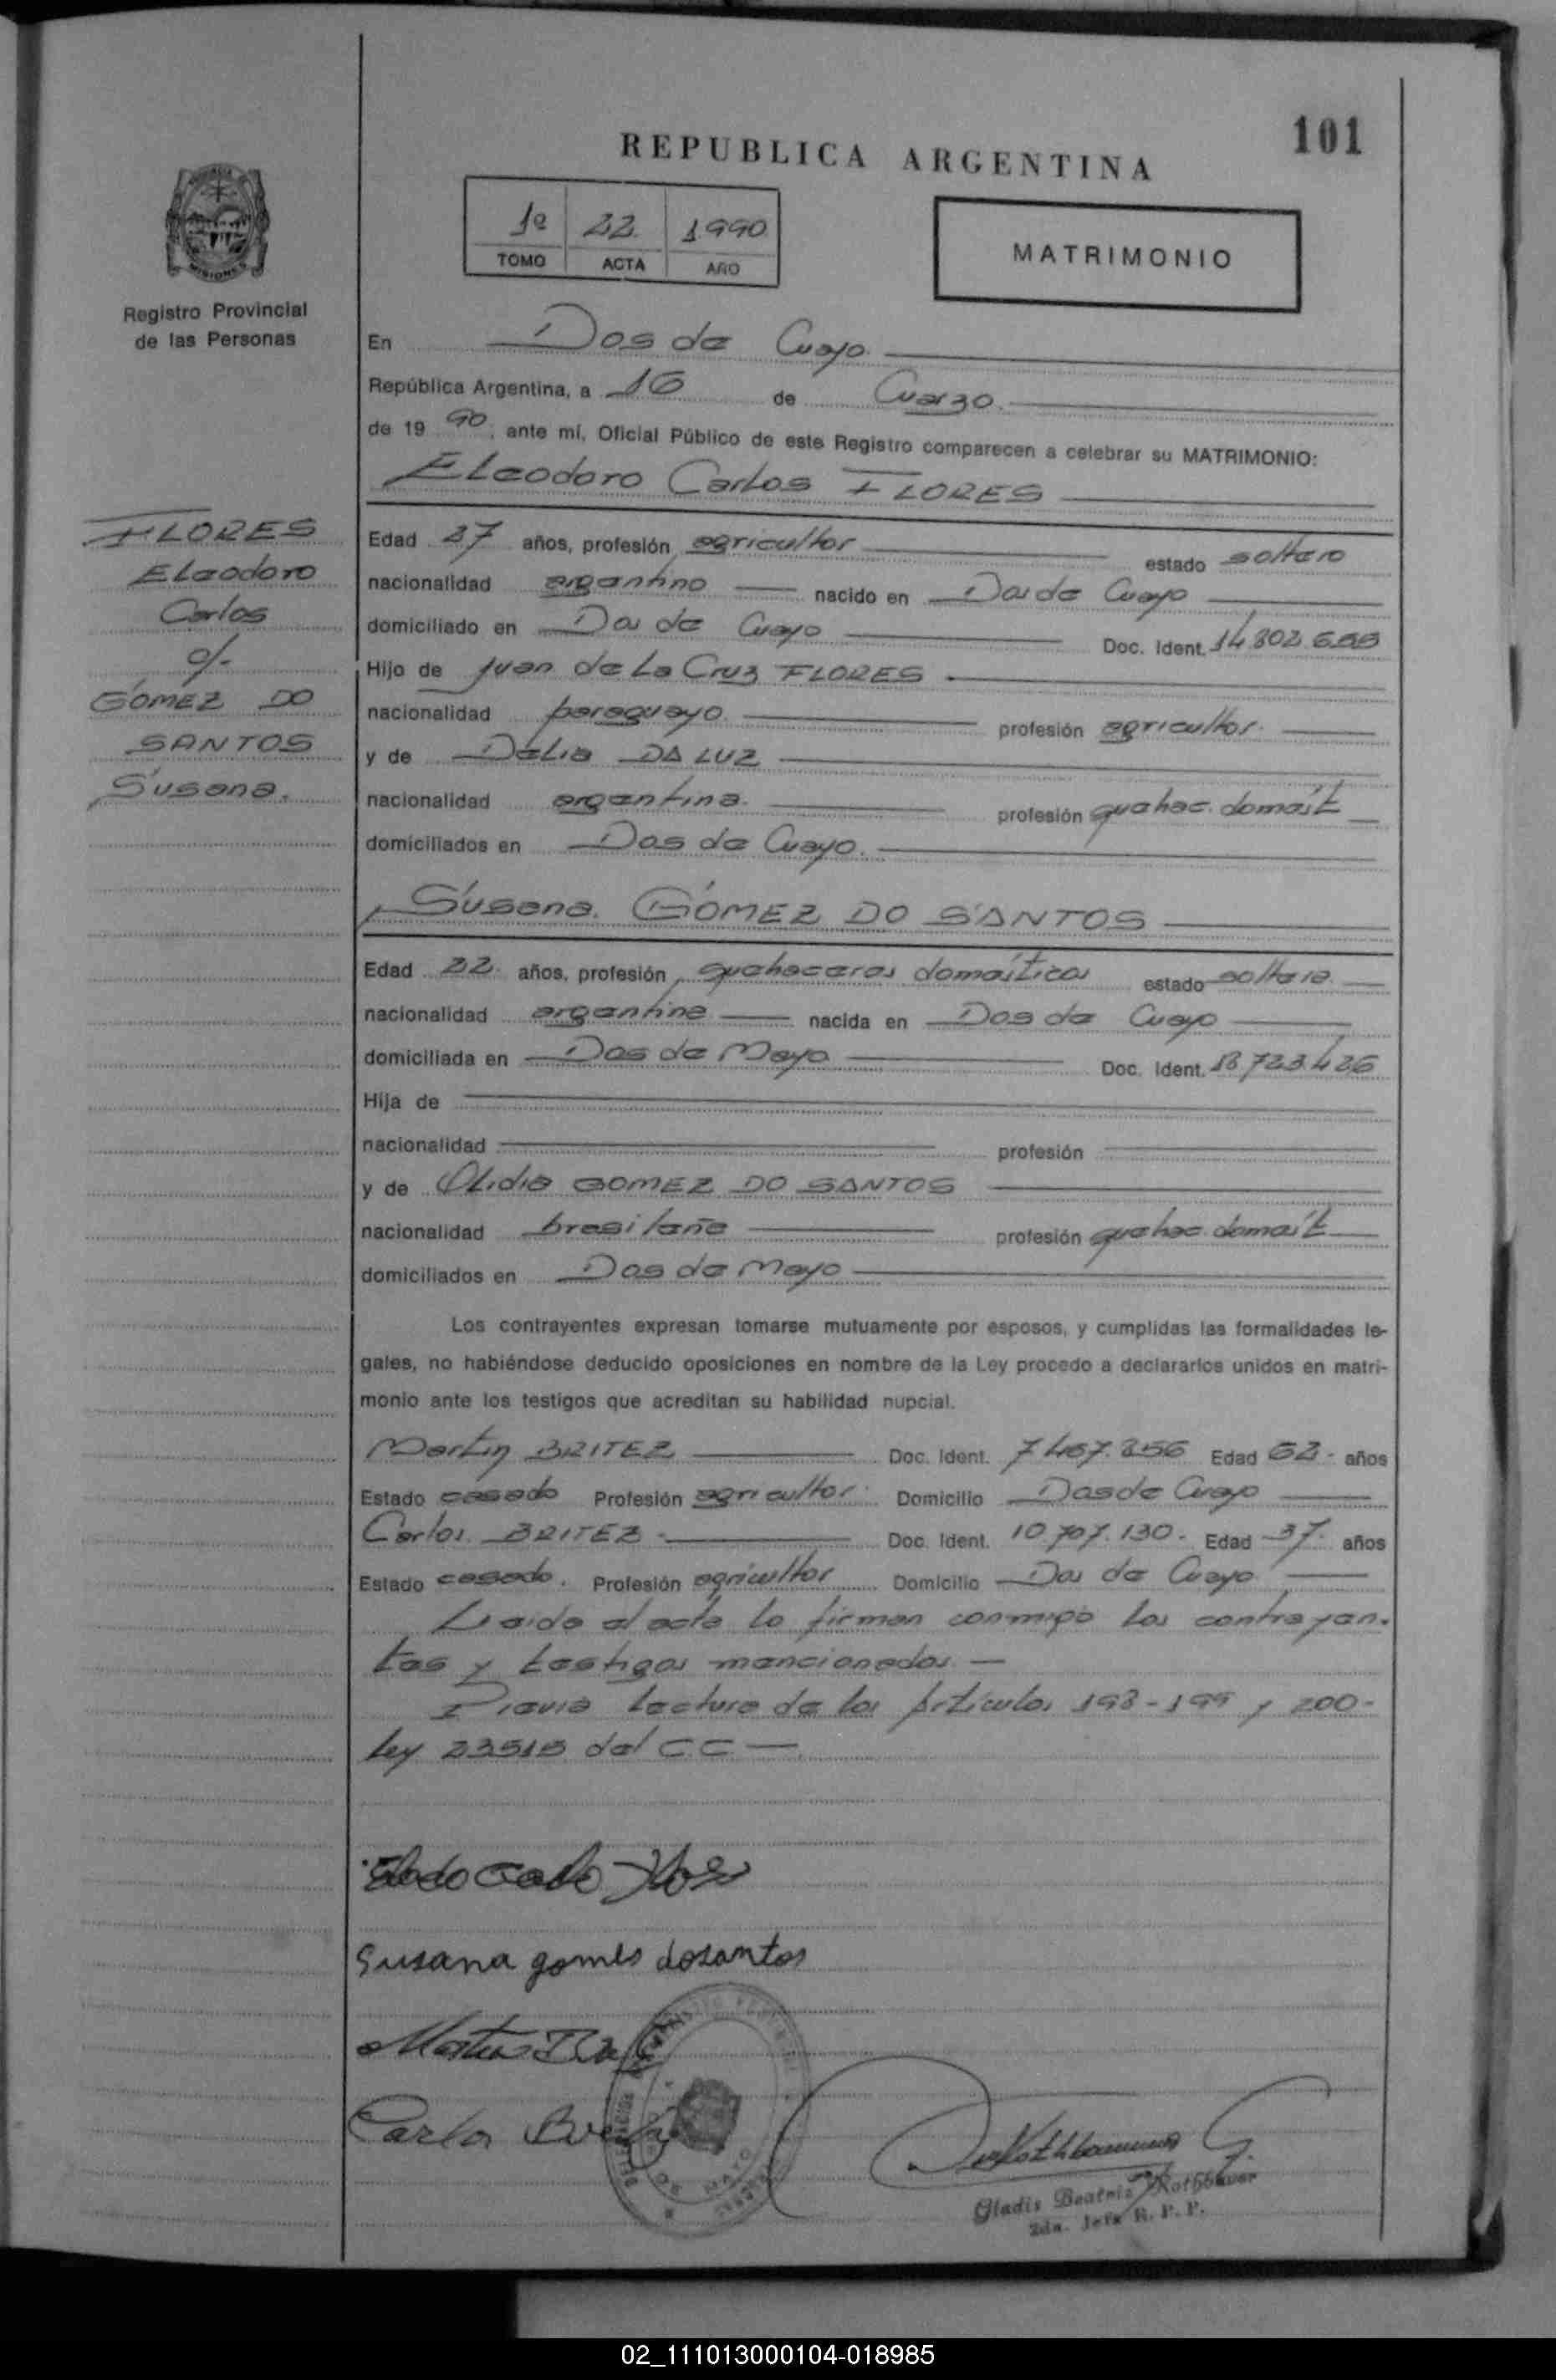 101
REPUBLICA ARGENTINA
1º 22 1990
TOMO ACTA AÑO
MATRIMONIO
MISIONES
Registro Provincial
de las Personas
En Dos de Mayo
República Argentina, a 16 de Marzo
de 19 90, ante mí, Oficial Público de este Registro comparecen a celebrar su MATRIMONIO:
Eleodoro Carlos FLORES
FLORES
Eleodoro
Carlos
c/-
GOMEZ DO
SANTOS
Susana.
Edad 27 años, profesión agricultor estado soltero
nacionalidad argentino nacido en Dos de Mayo
domiciliado en Dos de Mayo Doc. Ident.
Hijo de Juan de La Cruz FLORES
nacionalidad paraguayo profesión agricultor
y de Delia DA LUZ
nacionalidad argentina profesión quehac. domést
domiciliados en Dos de Mayo.
Susana GOMEZ DO SANTOS
Edad 22 años, profesión quehaceres domésticos estado soltera
nacionalidad argentina nacida en Dos de Mayo
domiciliada en Dos de Mayo Doc. Ident. 18.723.426
Hija de
nacionalidad profesión
y de Olidia GOMEZ DO SANTOS
nacionalidad brasileña profesión quehac. domést
domiciliados en Dos de Mayo
Los contrayentes expresan tomarse mutuamente por esposos, y cumplidas las formalidades le-
gales, no habiéndose deducido oposiciones en nombre de la Ley procedo a declararlos unidos en matri-
monio ante los testigos que acreditan su habilidad nupcial.
Martin BRITEZ Doc. Ident. Edad 62 años
Estado casado Profesión agricultor Domicilio Dos de Mayo
Carlos BRITEZ Doc. Ident. 10.707.130 Edad 37 años
Estado casado. Profesión agricultor Domicilio Dos de Mayo
Leida el acta la firman conmigo los contrayen-
tes y testigos mencionados. —
Previa lectura de los Artículos 198-199 y 200-
Ley 23515 del CC —
Susana gomes dosantos
Carlos
DOS DE MAYO
Gladis Beatriz Rothbauer
2da. Jefa R. P. P.
02_111013000104-018985